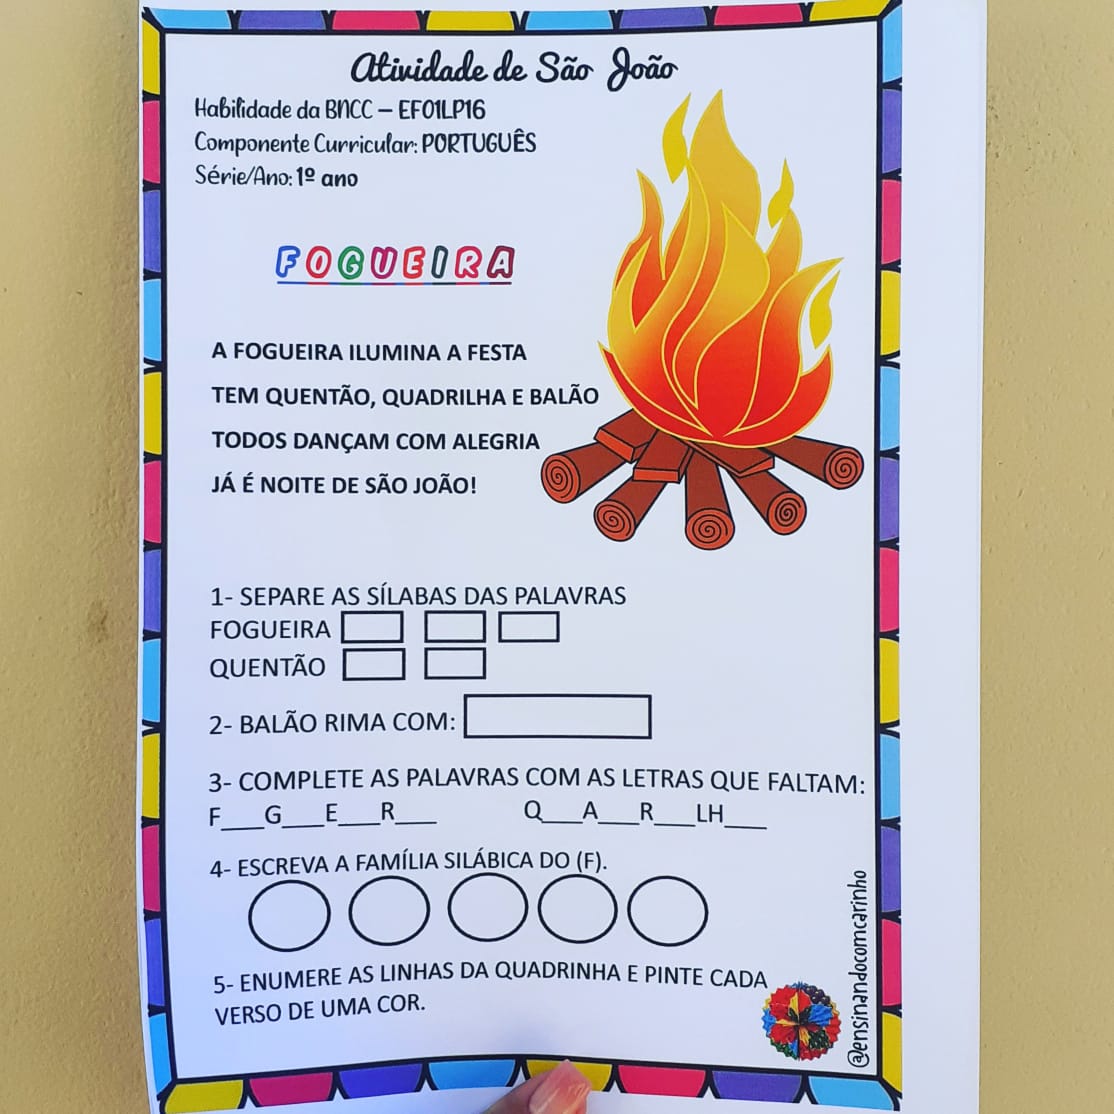 Atividade de São João
Habilidade da BNCC – EF01LP16
Componente Curricular: PORTUGUÊS
Série/Ano: 1º ano
FOGUEIRA
A FOGUEIRA ILUMINA A FESTA
TEM QUENTÃO, QUADRILHA E BALÃO
TODOS DANÇAM COM ALEGRIA
JÁ É NOITE DE SÃO JOÃO!
1- SEPARE AS SÍLABAS DAS PALAVRAS
FOGUEIRA
QUENTÃO
2- BALÃO RIMA COM:
3- COMPLETE AS PALAVRAS COM AS LETRAS QUE FALTAM:
F___G___E___R___ Q___A___R___LH___
4- ESCREVA A FAMÍLIA SILÁBICA DO (F).
5- ENUMERE AS LINHAS DA QUADRINHA E PINTE CADA
VERSO DE UMA COR.
@ensinandocomcarinho